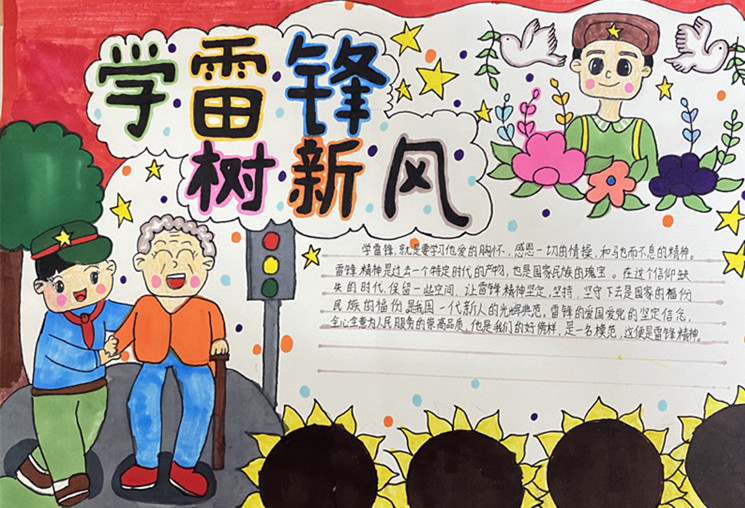 学雷锋
树新风
学雷锋,就是要学习他爱的胸怀,感恩一切的情操,和马也而不息的精神。
雷锋精神是过去一个特定时代的产物,也是国家民族的瑰宝。在这个信仰缺
失的时代,保留一些空间,让雷锋精神坚定,坚持,坚守下去是国家的福份
民族的福份是我国一代新人的光辉典范,雷锋的爱国爱党的坚定信念,
全心全意为人民服务的崇高品质,他是我们的好榜样,是一名模范,这便是雷锋精神。